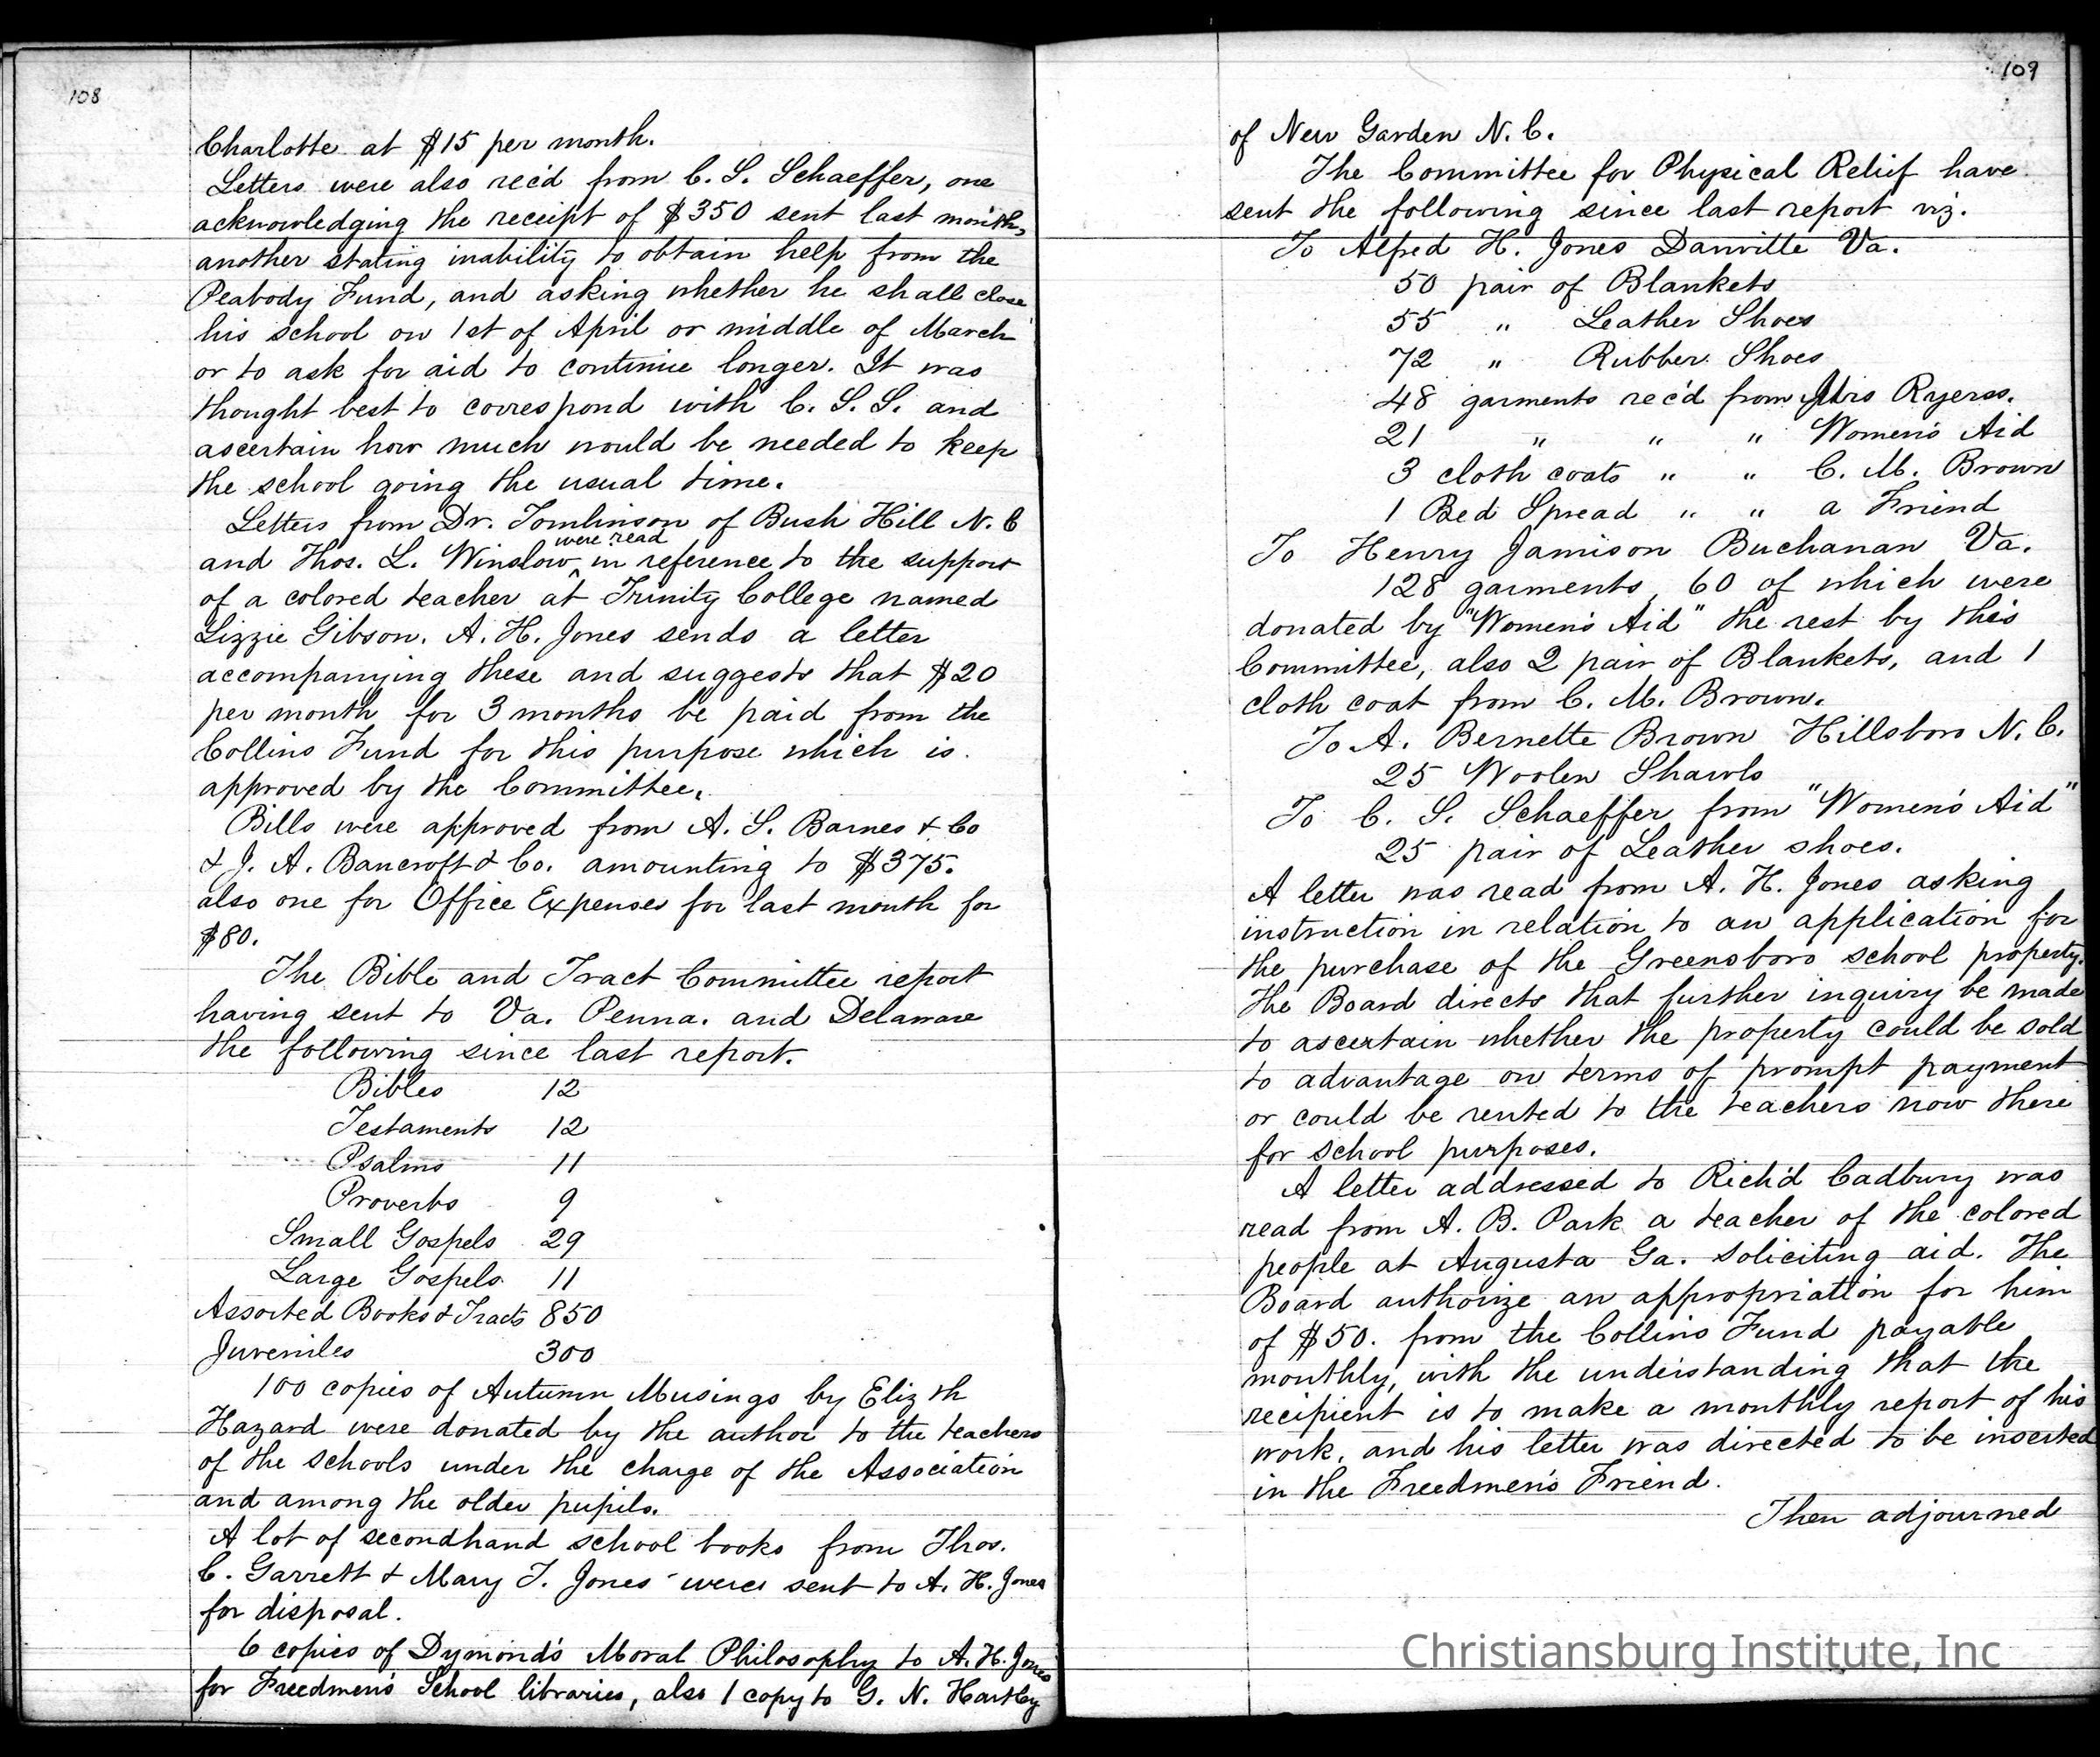 108
Charlotte at $15 per month.
Letters were also rec'd from C. S. Schaeffer, one
acknowledging the receipt of $350 sent last month,
another stating inability to obtain help from the
Peabody Fund, and asking whether he shall close
his school on 1st of April or middle of March
or to ask for aid to continue longer. It was
thought best to correspond with C. S. S. and
ascertain how much would be needed to keep
the school going the usual time.
Letters from Dr. Tomlinson of Bush Hill N. C
were read
and Thos. L. Winslow ^ in reference to the support
of a colored teacher at Trinity College named
Lizzie Gibson. A. H. Jones sends a letter
accompanying these and suggests that $20
per month for 3 months be paid from the
Collins Fund for this purpose which is
approved by the Committee.
Bills were approved from A. S. Barnes & Co
& J. A. Bancroft & Co. amounting to $375.
also one for Office Expenses for last month for
$80.
The Bible and Tract Committee report
having sent to Va. Penna. and Delaware
the following since last report.
Bibles 12
Testaments 12
Psalms 11
Proverbs 9
Small Gospels 29
Large Gospels 11
Assorted Books & Tracts 850
Juveniles 300
100 copies of Autumn Musings by Elizth
Hazard were donated by the author to the teachers
of the schools under the charge of the Association
and among the older pupils.
A lot of secondhand school books from Thos.
C. Garrett & Mary T. Jones were sent to A. H. Jones
for disposal.
6 copies of Dymond's Moral Philosophy to A. H. Jones
for Freedmen's School libraries, also 1 copy to G. N. Hartley
109
of New Garden N. C.
The Committee for Physical Relief have
sent the following since last report viz.
To Alfred H. Jones Danville Va.
50 pair of Blankets
55 " Leather Shoes
72 " Rubber Shoes
48 garments rec'd from Mrs Ryerss.
21 " " " Women's Aid
3 cloth coats " " C. M. Brown
1 Bed Spread " " a Friend
To Henry Jamison Buchanan Va.
128 garments, 60 of which were
donated by "Women's Aid" the rest by this
Committee, also 2 pair of Blankets, and 1
cloth coat from C. M. Brown.
To A. Bernette Brown Hillsboro N. C.
25 Woolen Shawls
To C. S. Schaeffer from "Women's Aid"
25 pair of Leather shoes.
A letter was read from A. H. Jones asking
instruction in relation to an application for
the purchase of the Greensboro school property.
The Board directs that further inquiry be made
to ascertain whether the property could be sold
to advantage on terms of prompt payment
or could be rented to the teachers now there
for school purposes.
A letter addressed to Rich'd Cadbury was
read from A. B. Park a teacher of the colored
people at Augusta Ga. soliciting aid. The
Board authorize an appropriation for him
of $50. from the Collins Fund payable
monthly, with the understanding that the
recipient is to make a monthly report of his
work, and his letter was directed to be inserted
in the Freedmen's Friend.
Then adjourned
Christiansburg Institute, Inc